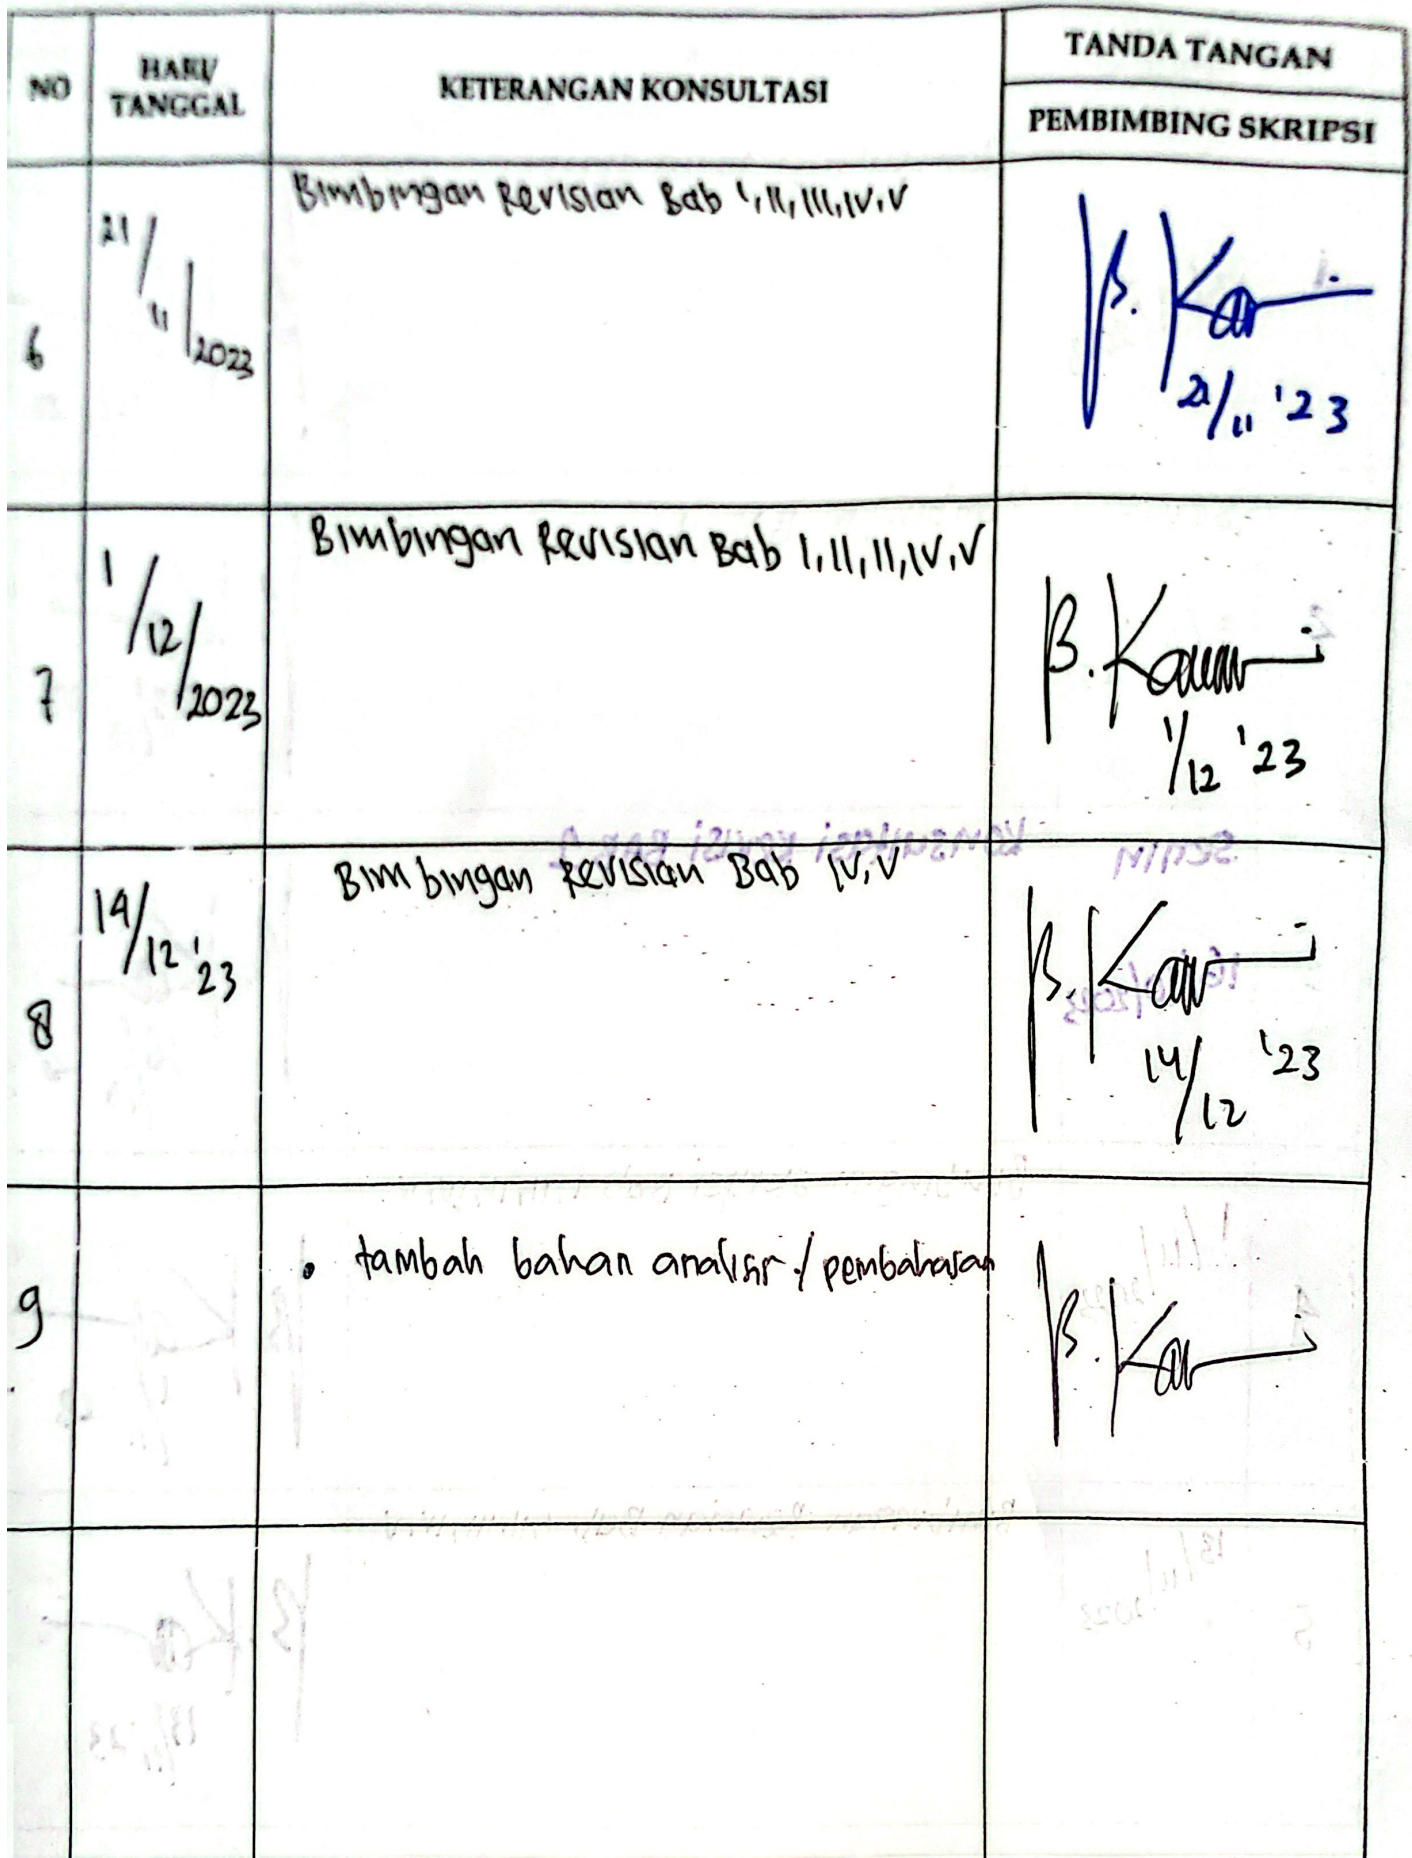 NO
HARI/
TANGGAL
KETERANGAN KONSULTASI
TANDA TANGAN
PEMBIMBING SKRIPSI
6
21/11/2023
Bimbingan Revisian Bab I, II, III, IV, V
21/11 '23
7
1/12/2023
Bimbingan Revisian Bab I, II, II, IV, V
1/12 '23
8
14/12 '23
Bimbingan Revisian Bab IV, V
14/12 '23
9
• tambah bahan analisis / pembahasan